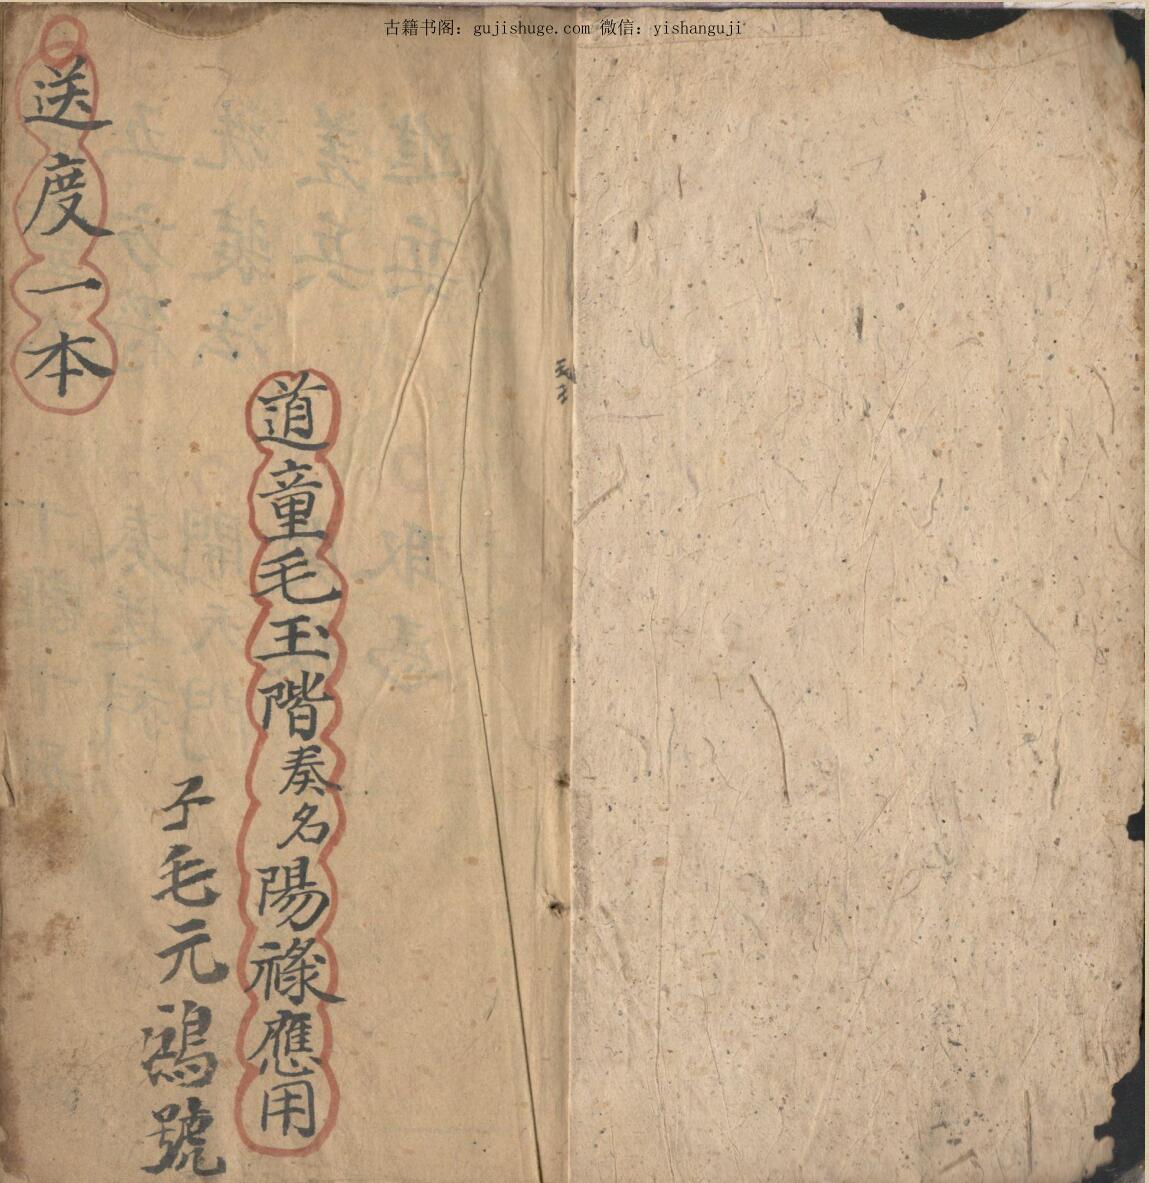 古籍书阁：gujishuge.com 微信：yishanguji
道童毛玉階奏名陽祿應用
子毛元鴻號
送度一本